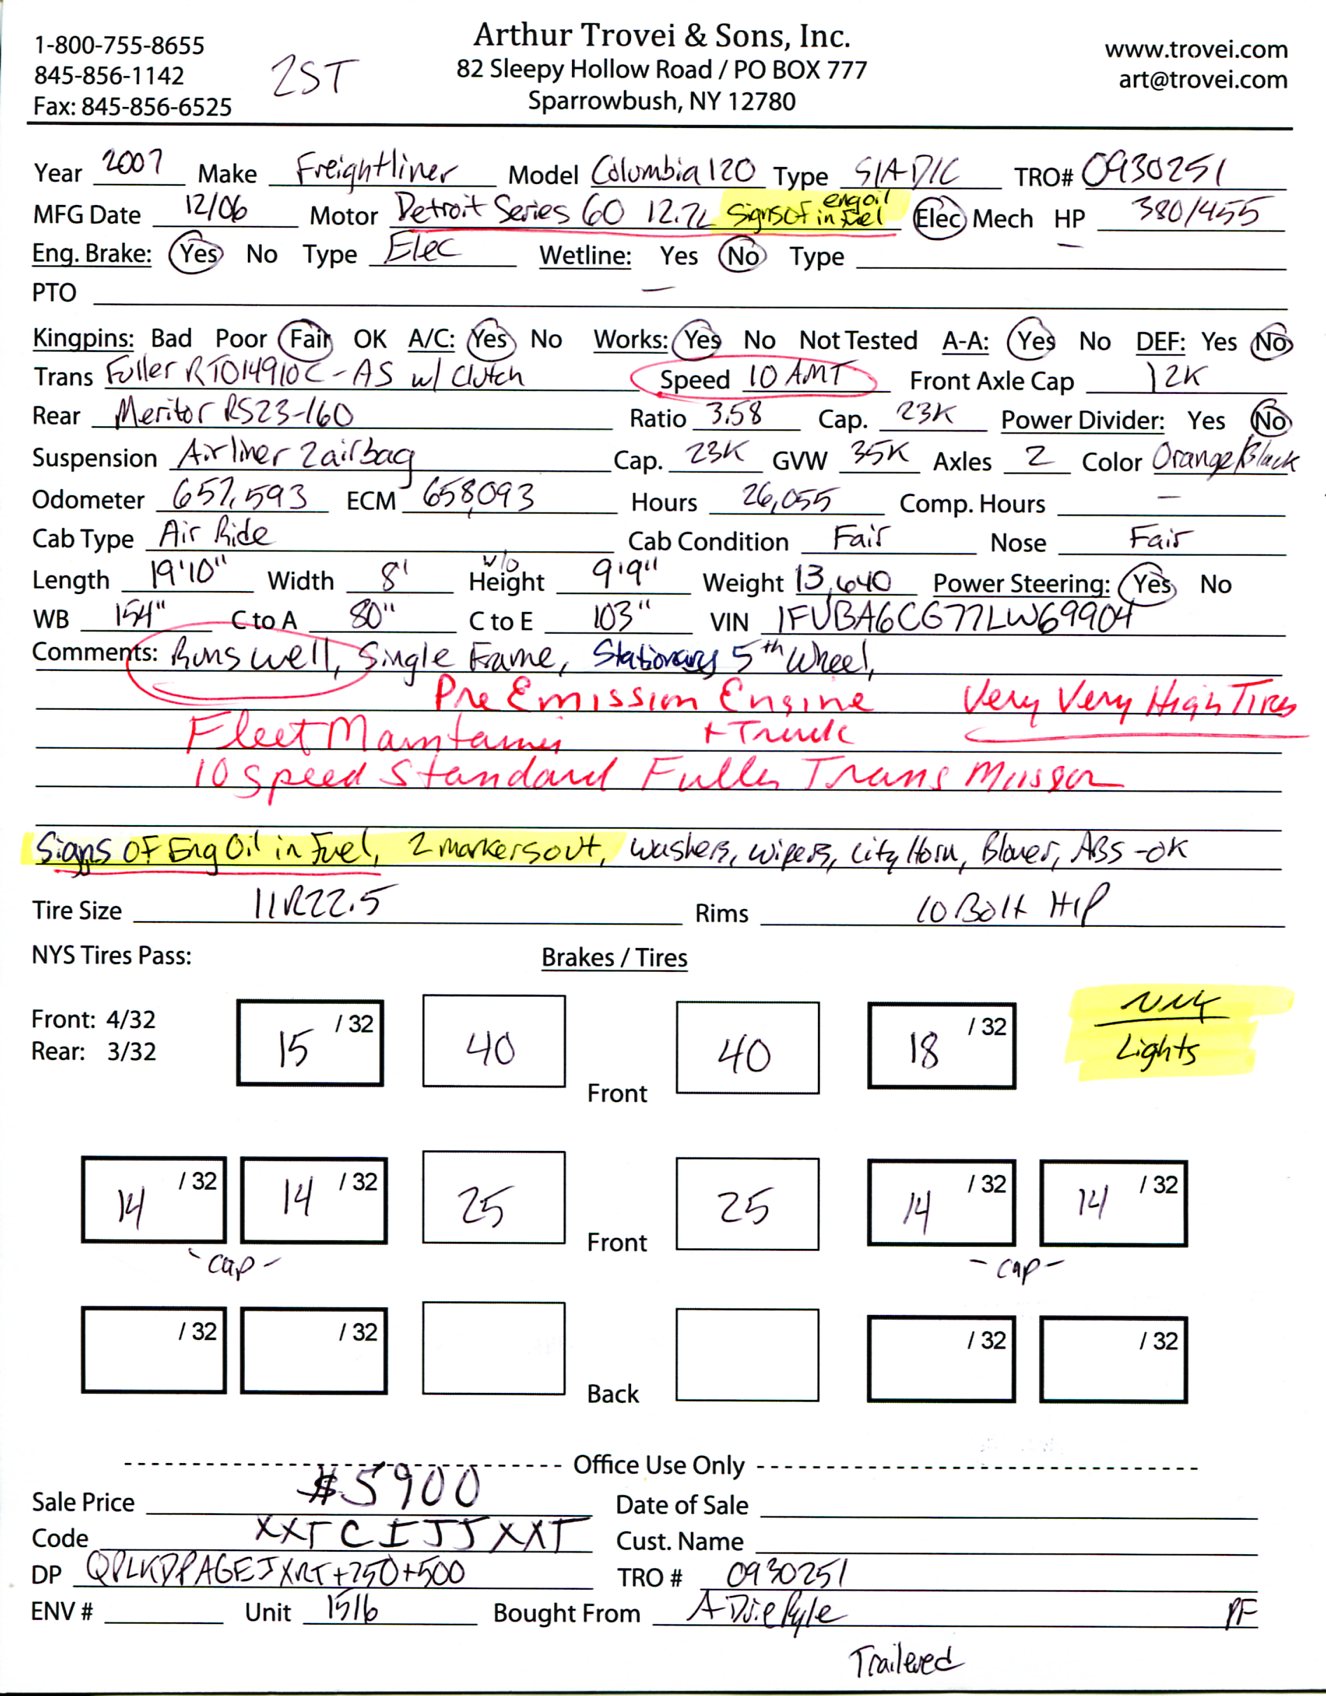 1-800-755-8655
845-856-1142
Fax: 845-856-6525
2ST
Arthur Trovei & Sons, Inc.
82 Sleepy Hollow Road / PO BOX 777
Sparrowbush, NY 12780
www.trovei.com
art@trovei.com
Year 2007 Make Freightliner Model Columbia 120 Type S/A D/C TRO# 0930251
MFG Date 12/06 Motor Detroit Series 60 12.7L Signs of eng oil in fuel Elec Mech HP 380/455
Eng. Brake: Yes No Type Elec Wetline: Yes No Type —
PTO —
Kingpins: Bad Poor Fair OK A/C: Yes No Works: Yes No Not Tested A-A: Yes No DEF: Yes No
Trans Fuller RTO14910C-AS w/ Clutch Speed 10 AMT Front Axle Cap 12K
Rear Meritor RS23-160 Ratio 3.58 Cap. 23K Power Divider: Yes No
Suspension Airliner 2 airbag Cap. 23K GVW 35K Axles 2 Color Orange/Black
Odometer 657,593 ECM 658,093 Hours 26,055 Comp. Hours —
Cab Type Air Ride Cab Condition Fair Nose Fair
Length 19'10" Width 8' w/o Height 9'9" Weight 13,640 Power Steering: Yes No
WB 154" C to A 80" C to E 103" VIN 1FUBA6CG77LW69904
Comments: Runs well, Single Frame, Stationary 5th Wheel,
Pre Emission Engine Very Very High Tires
Fleet Maintained + Truck
10 Speed Standard Fuller
Signs of Eng Oil in Fuel, 2 markers out, washers, wipers, City Horn, Blower, ABS -OK
Tire Size 11R22.5 Rims 10 Bolt H/P
NYS Tires Pass: Brakes / Tires
Front: 4/32
Rear: 3/32
15 /32 40 Front 40 18 /32
Lights
14 /32 14 /32 25 Front 25 14 /32 14 /32
-cap- -cap-
/ 32 / 32 Back / 32 / 32
Office Use Only
Sale Price $5900 Date of Sale
Code XXTCIJJXXT Cust. Name
DP QPLKDPAGEJXRT+250+500 TRO # 0930251
ENV # Unit 1516 Bought From PF
Trailered